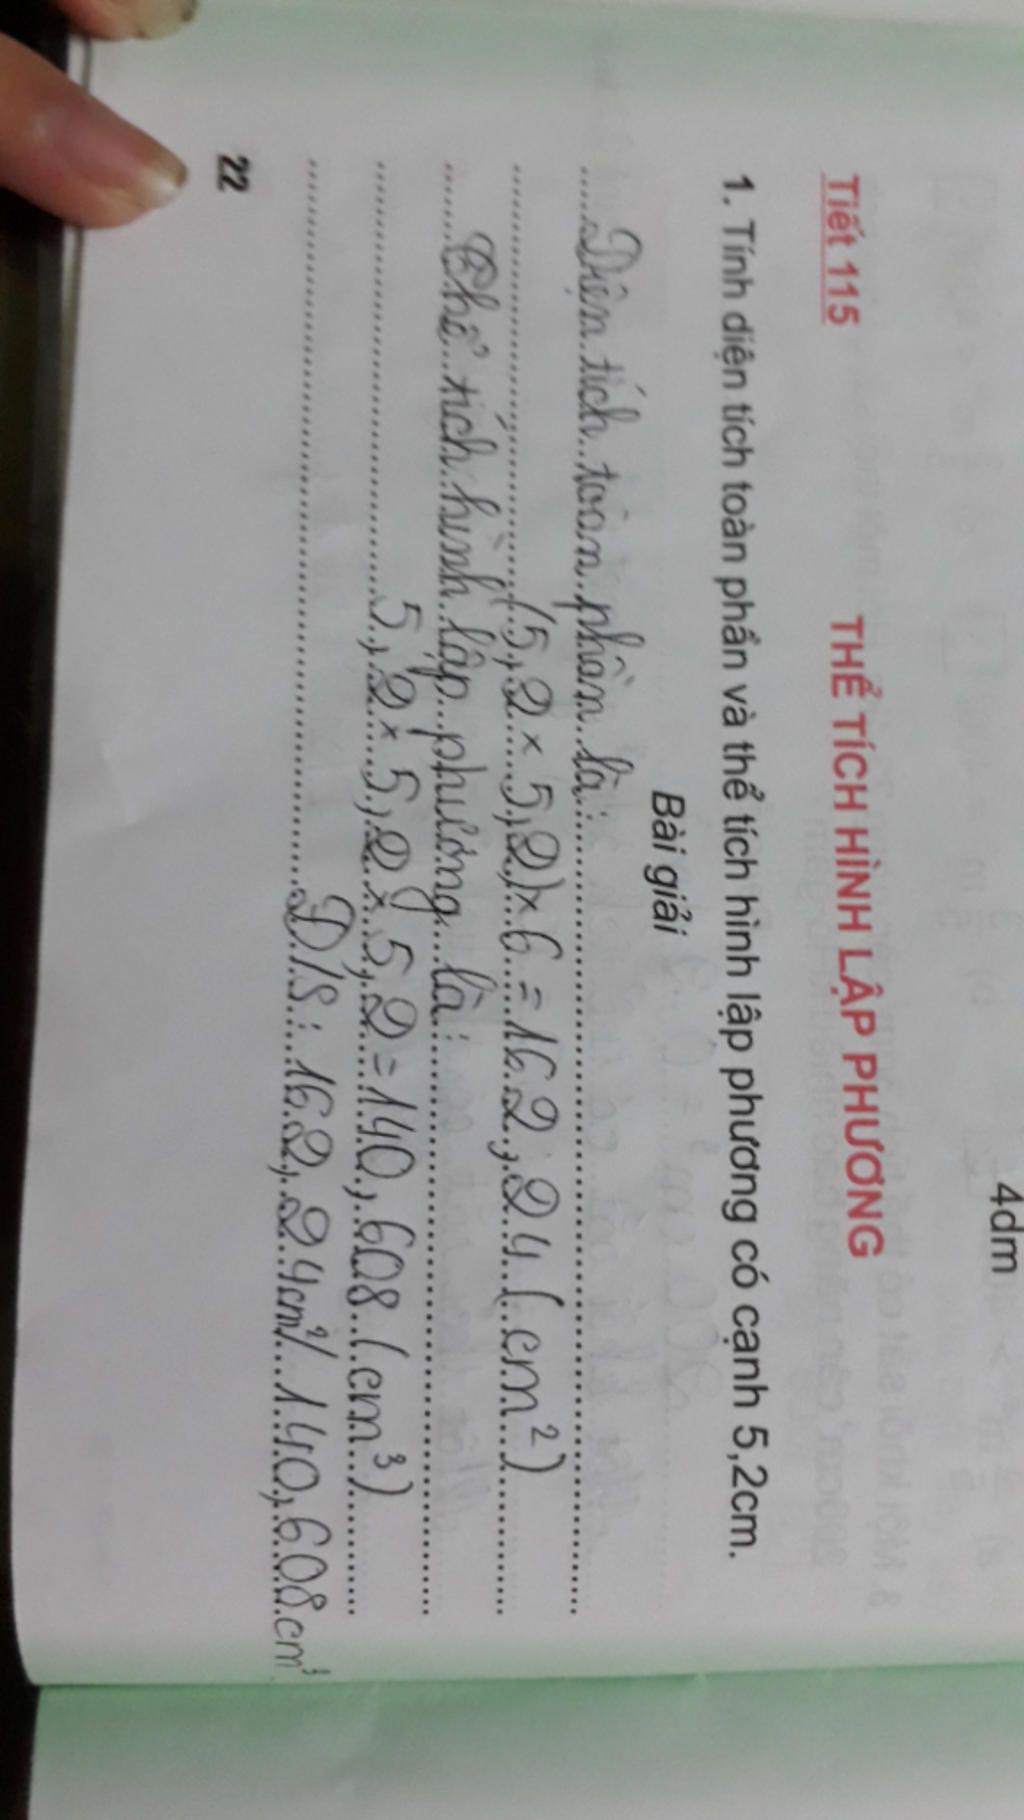 4dm
Tiết 115 THỂ TÍCH HÌNH LẬP PHƯƠNG
1. Tính diện tích toàn phần và thể tích hình lập phương có cạnh 5,2cm.
Bài giải
Diện tích toàn phần là:
(5,2 × 5,2) × 6 = 162,24 (cm²)
Thể tích hình lập phương là:
5,2 × 5,2 × 5,2 = 140,608 (cm³)
Đ/S: 162,24cm² / 140,608cm³
22